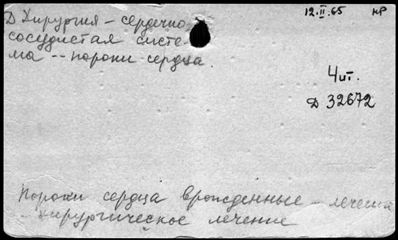 Д Хирургия – сердечно
12.II.65 кр
сосудистая систе-
ма -- пороки сердца.
4 шт.
Д 32672
Пороки сердца врожденные – лечение
– хирургическое лечение